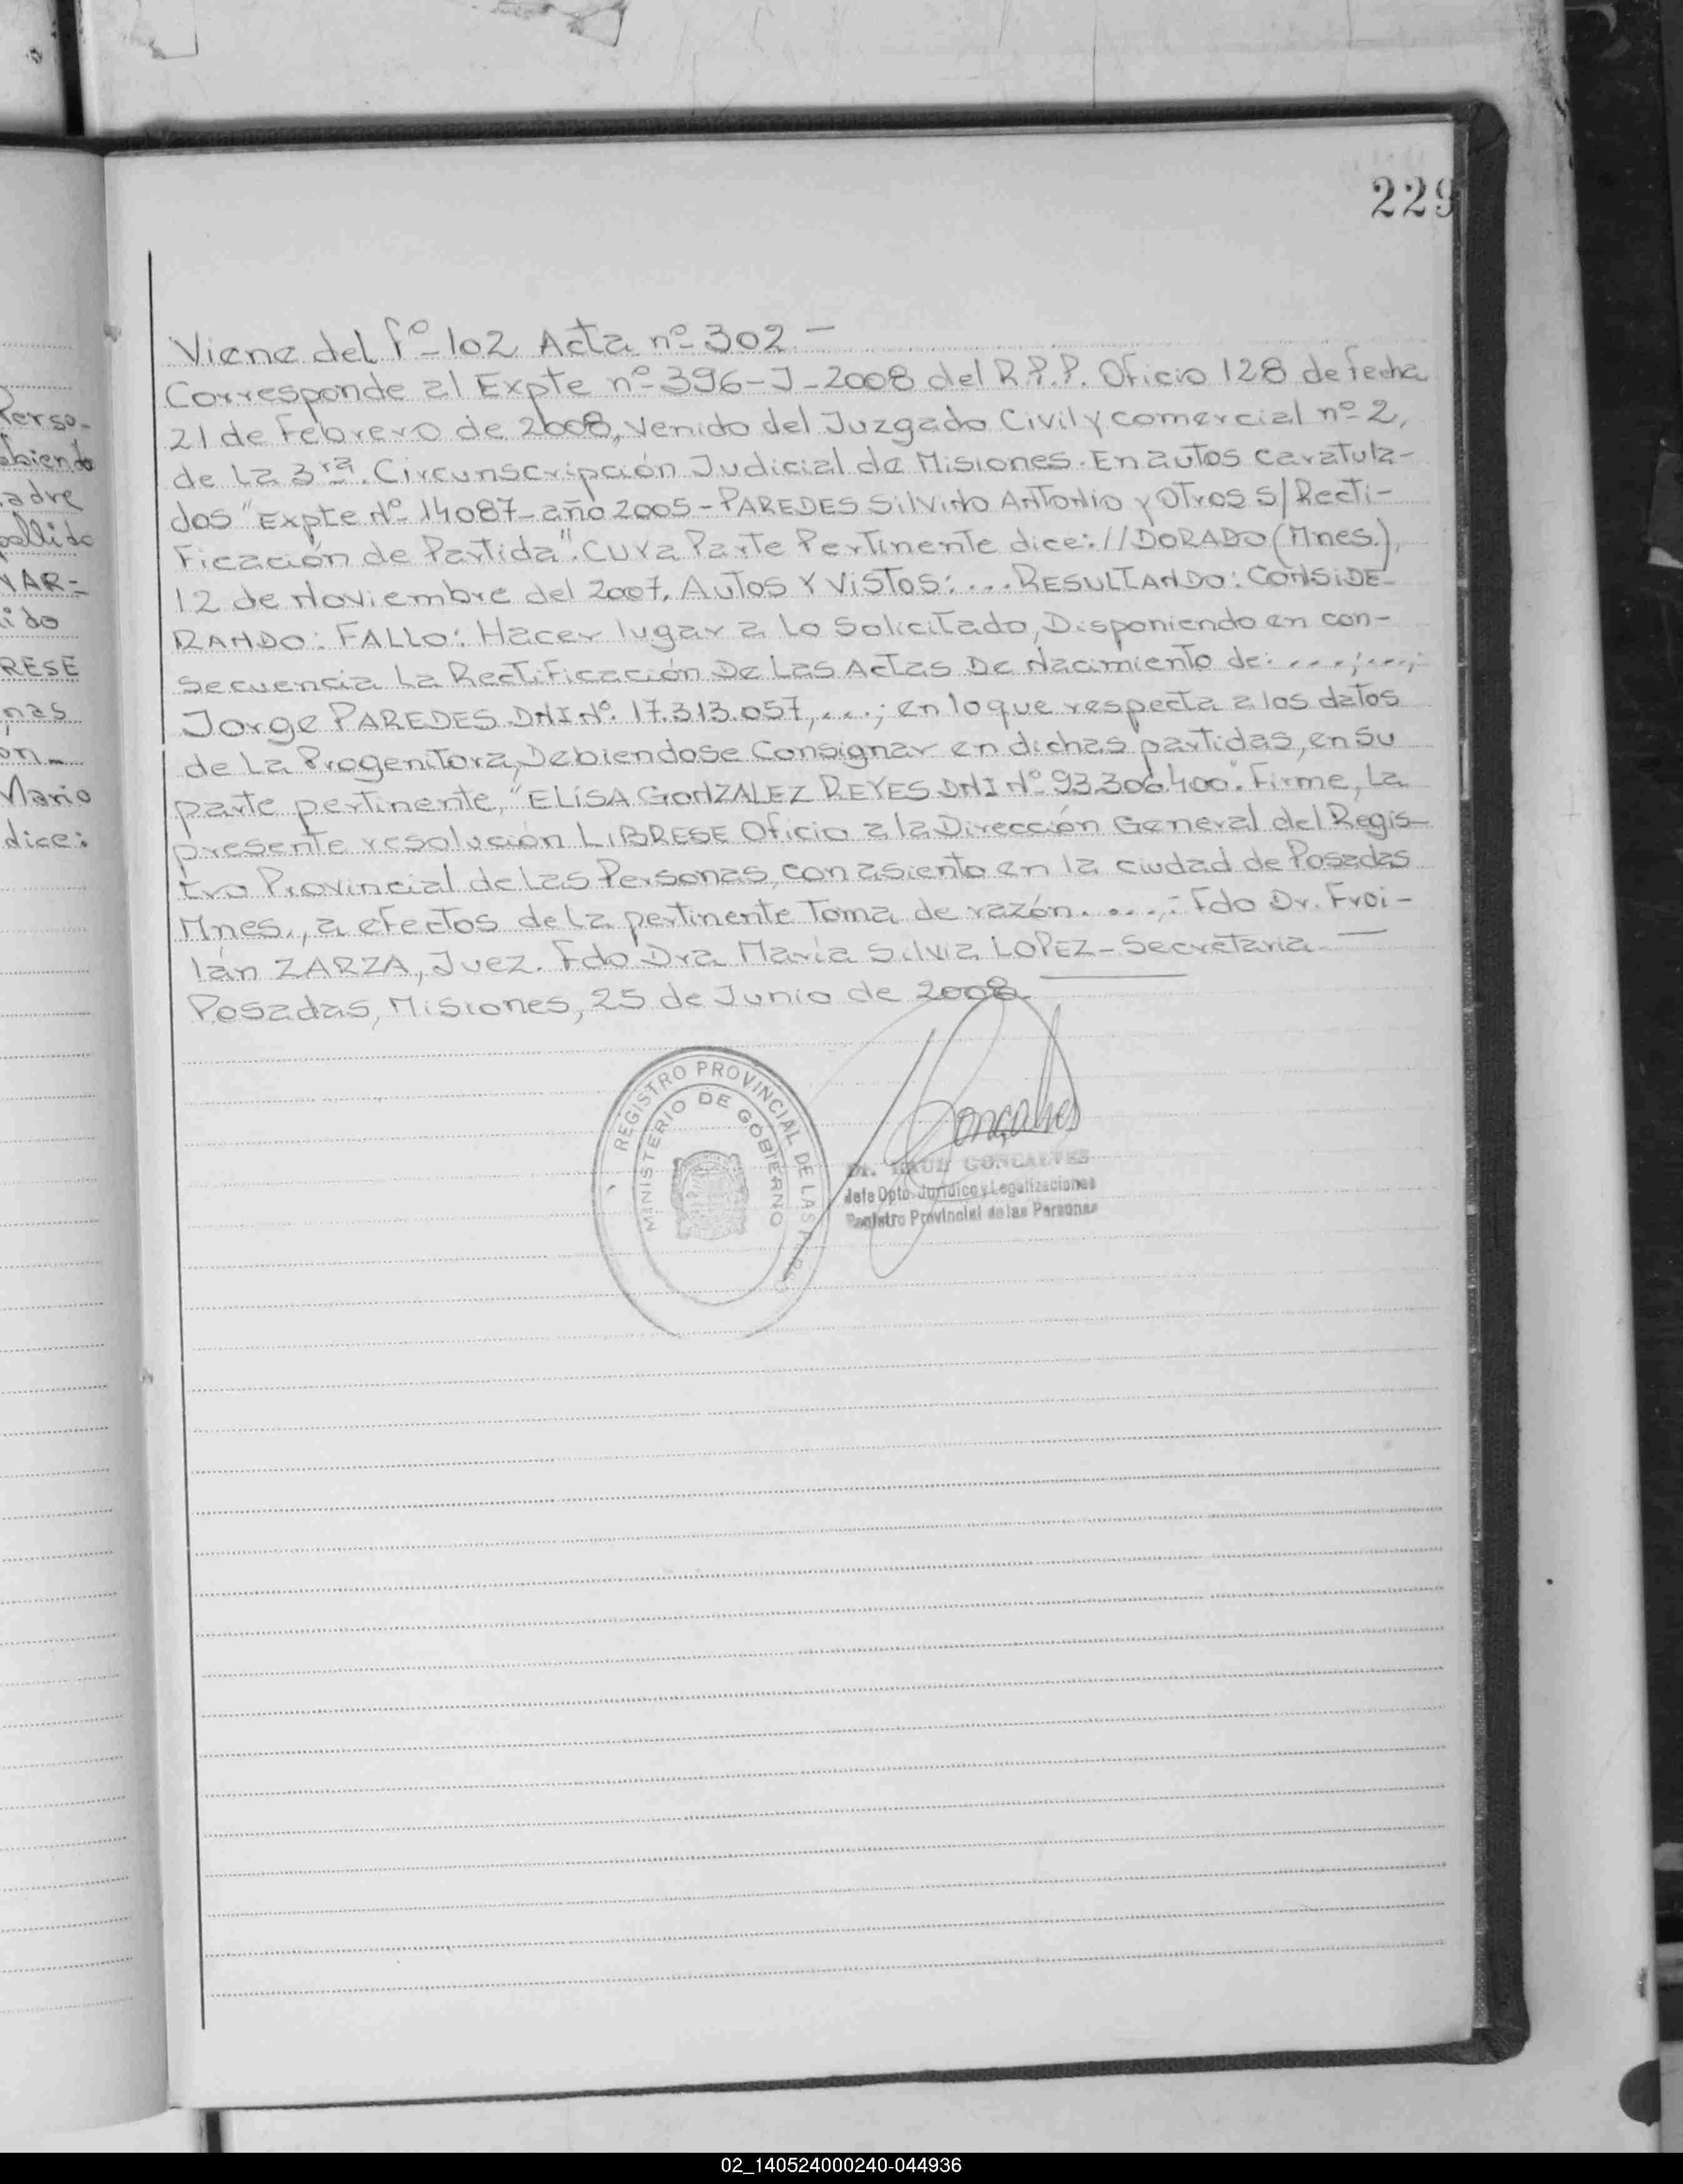 229
Perso-
biendo
adre
pellido
NAR-
ido
RESE
nas
on-
Mario
dice:
Viene del fº-102 Acta nº-302-
Corresponde al Expte nº-396-J-2008 del R.P.P. Oficio 128 de fecha
21 de Febrero de 2008, venido del Juzgado Civil y comercial nº-2,
de La 3ra. Circunscripción Judicial de Misiones. En autos caratula-
dos "Expte Nº-14087-año 2005-PAREDES Silvino ANTONIO y Otros S/Recti-
Ficación de Partida". Cuya Parte Pertinente dice: //DORADO (Mnes.),
12 de Noviembre del 2007. Autos Y Vistos: ... RESULTANDO: CONSIDE-
RANDO: FALLO: Hacer lugar a Lo Solicitado, Disponiendo en con-
secuencia La Rectificación De Las Actas De Nacimiento de: ...;...;
Jorge PAREDES DNI Nº. 17.313.057, ...; en lo que respecta a los datos
de La Progenitora, Debiendose Consignar en dichas partidas, en Su
parte pertinente, "ELISA GONZALEZ REYES DNI Nº-93.306.400". Firme, La
presente resolución LIBRESE Oficio a la Dirección General del Regis-
tro Provincial de Las Personas, con asiento en la ciudad de Posadas
Mnes., a efectos de La pertinente Toma de razón. ...: Fdo Dr. Froi-
lán ZARZA, Juez. Fdo Dra María Silvia LOPEZ-Secretaria-
Posadas, Misiones, 25 de Junio de 2008.
REGISTRO PROVINCIAL DE LAS PERS
MINISTERIO DE GOBIERNO
Goncalves
Dr. RAUL GONCALVES
Jefe Dpto. Jurídico y Legalizaciones
Registro Provincial de las Personas
02_140524000240-044936